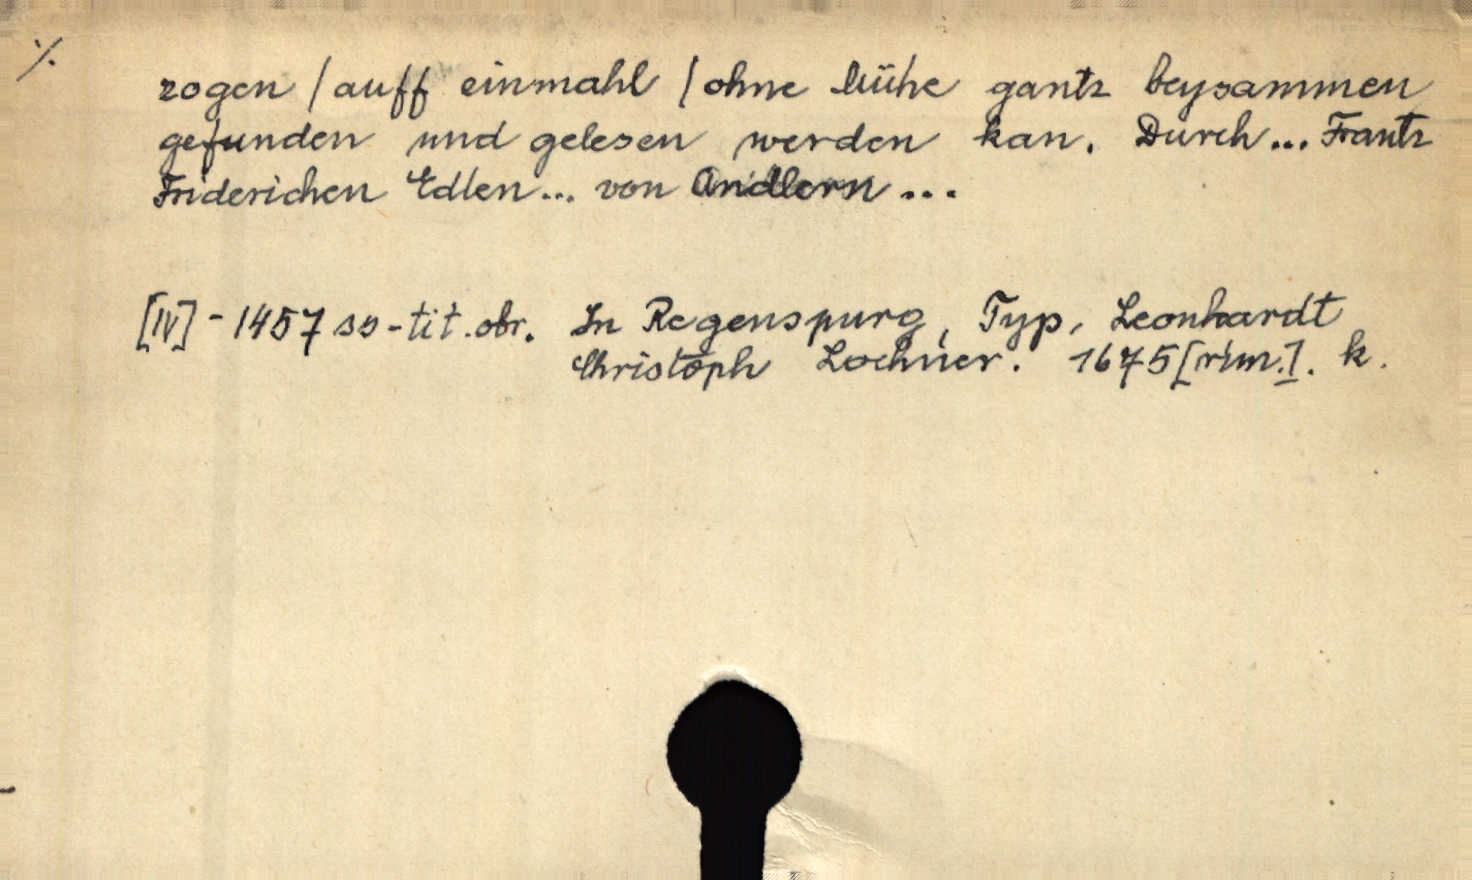 ·/.
zogen / auff einmahl / ohne Mühe gantz beysammen
gefunden und gelesen werden kan. Durch... Frantz
Friderichen Edlen... von Andlern...
[IV] - 1457 ss - tit. obr. In Regenspurg, Typ. Leonhardt
Christoph Lochner. 1675 [rím.]. k.